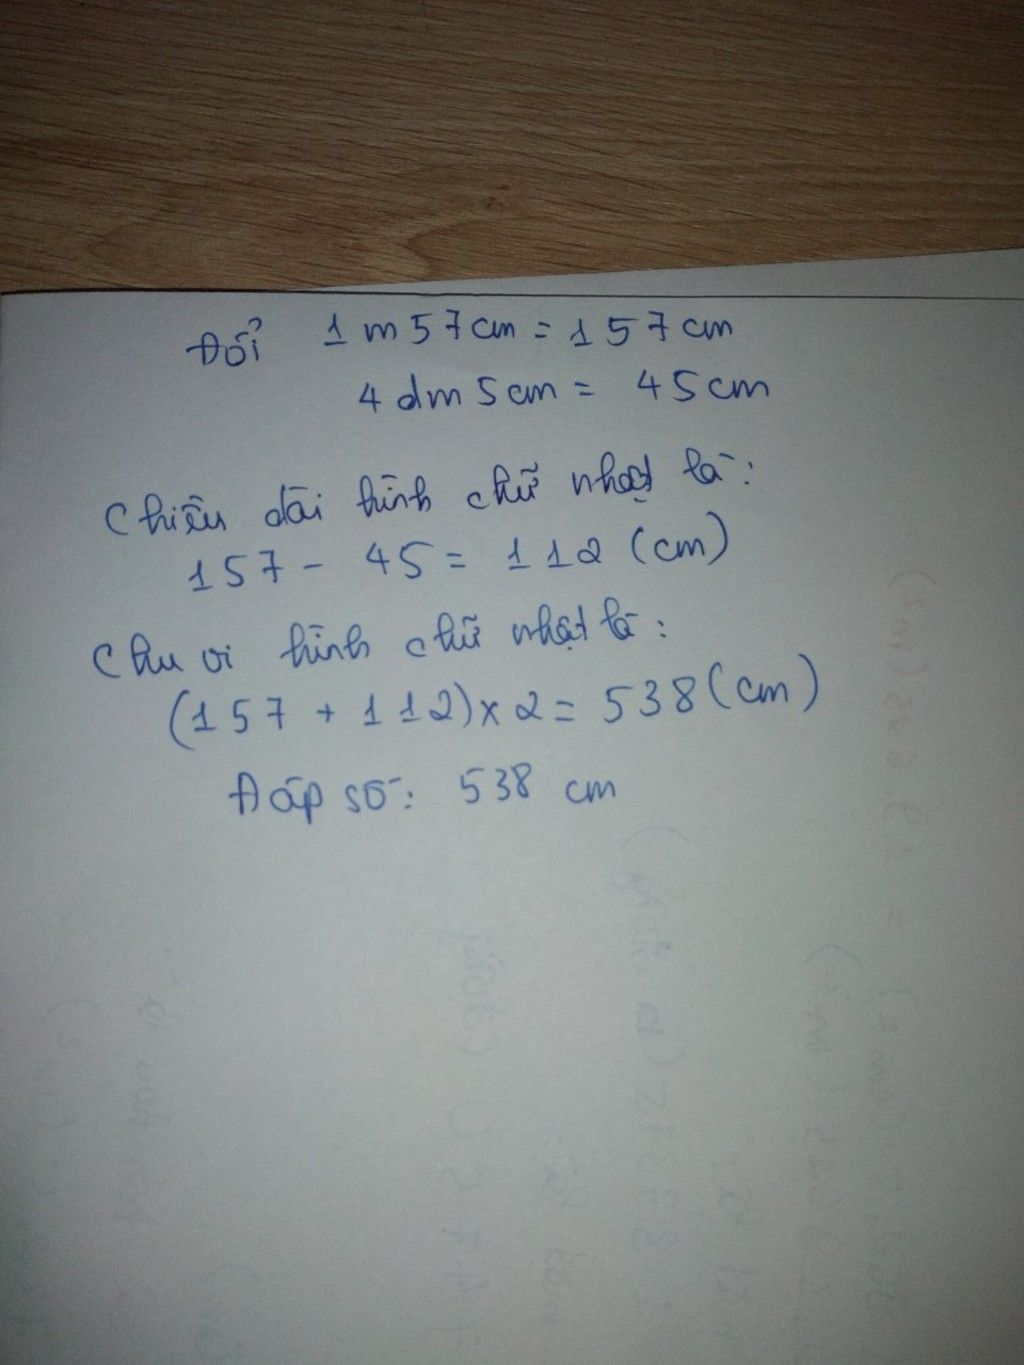 Đổi 1m57cm = 157cm
4dm5cm = 45cm
Chiều dài hình chữ nhật là:
157 - 45 = 112 (cm)
Chu vi hình chữ nhật là:
(157 + 112) x 2 = 538 (cm)
Đáp số: 538 cm